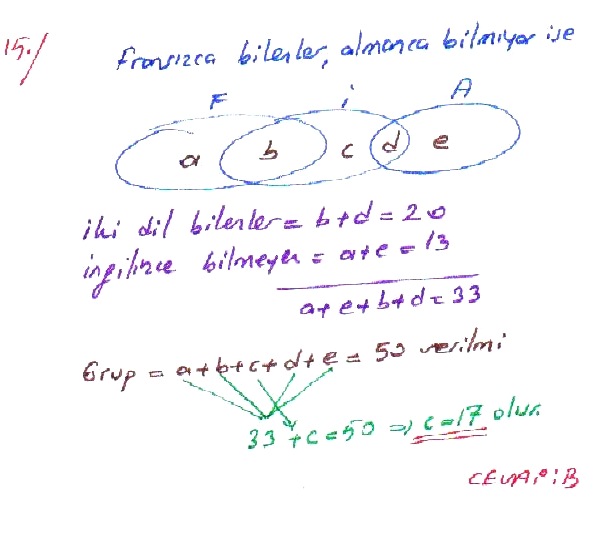 15./ Fransızca bilenler, almanca bilmiyor ise
F i A
a b c d e
iki dil bilenler = b+d = 20
ingilizce bilmeyen = a+e = 13
a+e+b+d = 33
Grup = a+b+c+d+e = 50 verilmi
33+c=50 ⇒ c=17 olur.
CEVAP: B